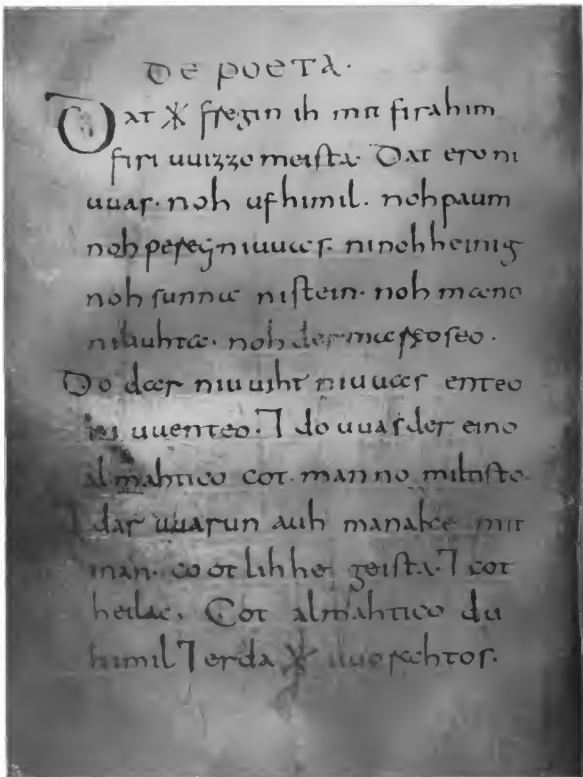 De poeta.
Dat * fregin ih mit firahim
firi uuizzo meista. Dat ero ni
uuas. noh ufhimil. noh paum
noh pereg ni uuas. ni noh heinig
noh sunna ni stein. noh mano
ni liuhta. noh der mareoseo.
Do dar niuuiht ni uuas enteo
ni uuenteo. ⁊ do uuas der eino
almahtico cot. manno miltisto.
⁊ dar uuarun auh manake mit
inan. cootlihhe geista. ⁊ cot
heilac. Cot almahtico du
himil ⁊ erda * uuorahtos.